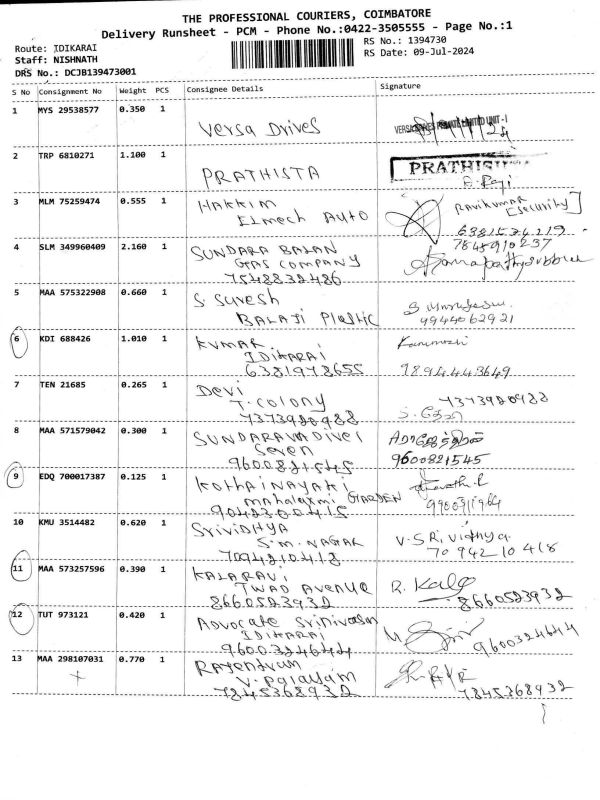 THE PROFESSIONAL COURIERS, COIMBATORE
Delivery Runsheet - PCM - Phone No.:0422-3505555 - Page No.:1
Route: IDIKARAI
RS No.: 1394730
Staff: NISHNATH
RS Date: 09-Jul-2024
DRS No.: DCJB139473001
S No Consignment No Weight PCS Consignee Details Signature
1 MYS 29538577 0.350 1
Versa Drives
2 TRP 6810271 1.100 1
PRATHISTA
PRATHIS
3 MLM 75259474 0.555 1
HAKKIM
Elmech Auto
Ravikumar
[Security]
6381534219
4 SLM 349960409 2.160 1
SUNDARA BALAN
GAS COMPANY
7548832486
7845910237
5 MAA 575322908 0.660 1
S. Suresh
BALAJI Plastic
9944062921
6 KDI 688426 1.010 1
KUMAR
IDIKARAI
6381978655
9894443649
7 TEN 21685 0.265 1
Devi
T. Colony
7373920988
7373920988
8 MAA 571579042 0.300 1
SUNDARAVADIVEL
Seven
9600821545
9600821545
9 EDQ 700017387 0.125 1
Kothainayaki
Mahalaxmi GARDEN
9042300415
10 KMU 3514482 0.620 1
Srividhya
S.M. NAGAR
7094210418
V. SRividhya.
7094210418
11 MAA 573257596 0.390 1
KALARAVI
TWAD Avenue
8660523932
R. Kala
8660523932
12 TUT 973121 0.420 1
Advocate Srinivasan
IDIKARAI
9600324644
9600324644
13 MAA 298107031 0.770 1
Rajendran
V. Palayam
7845368932
7845368932